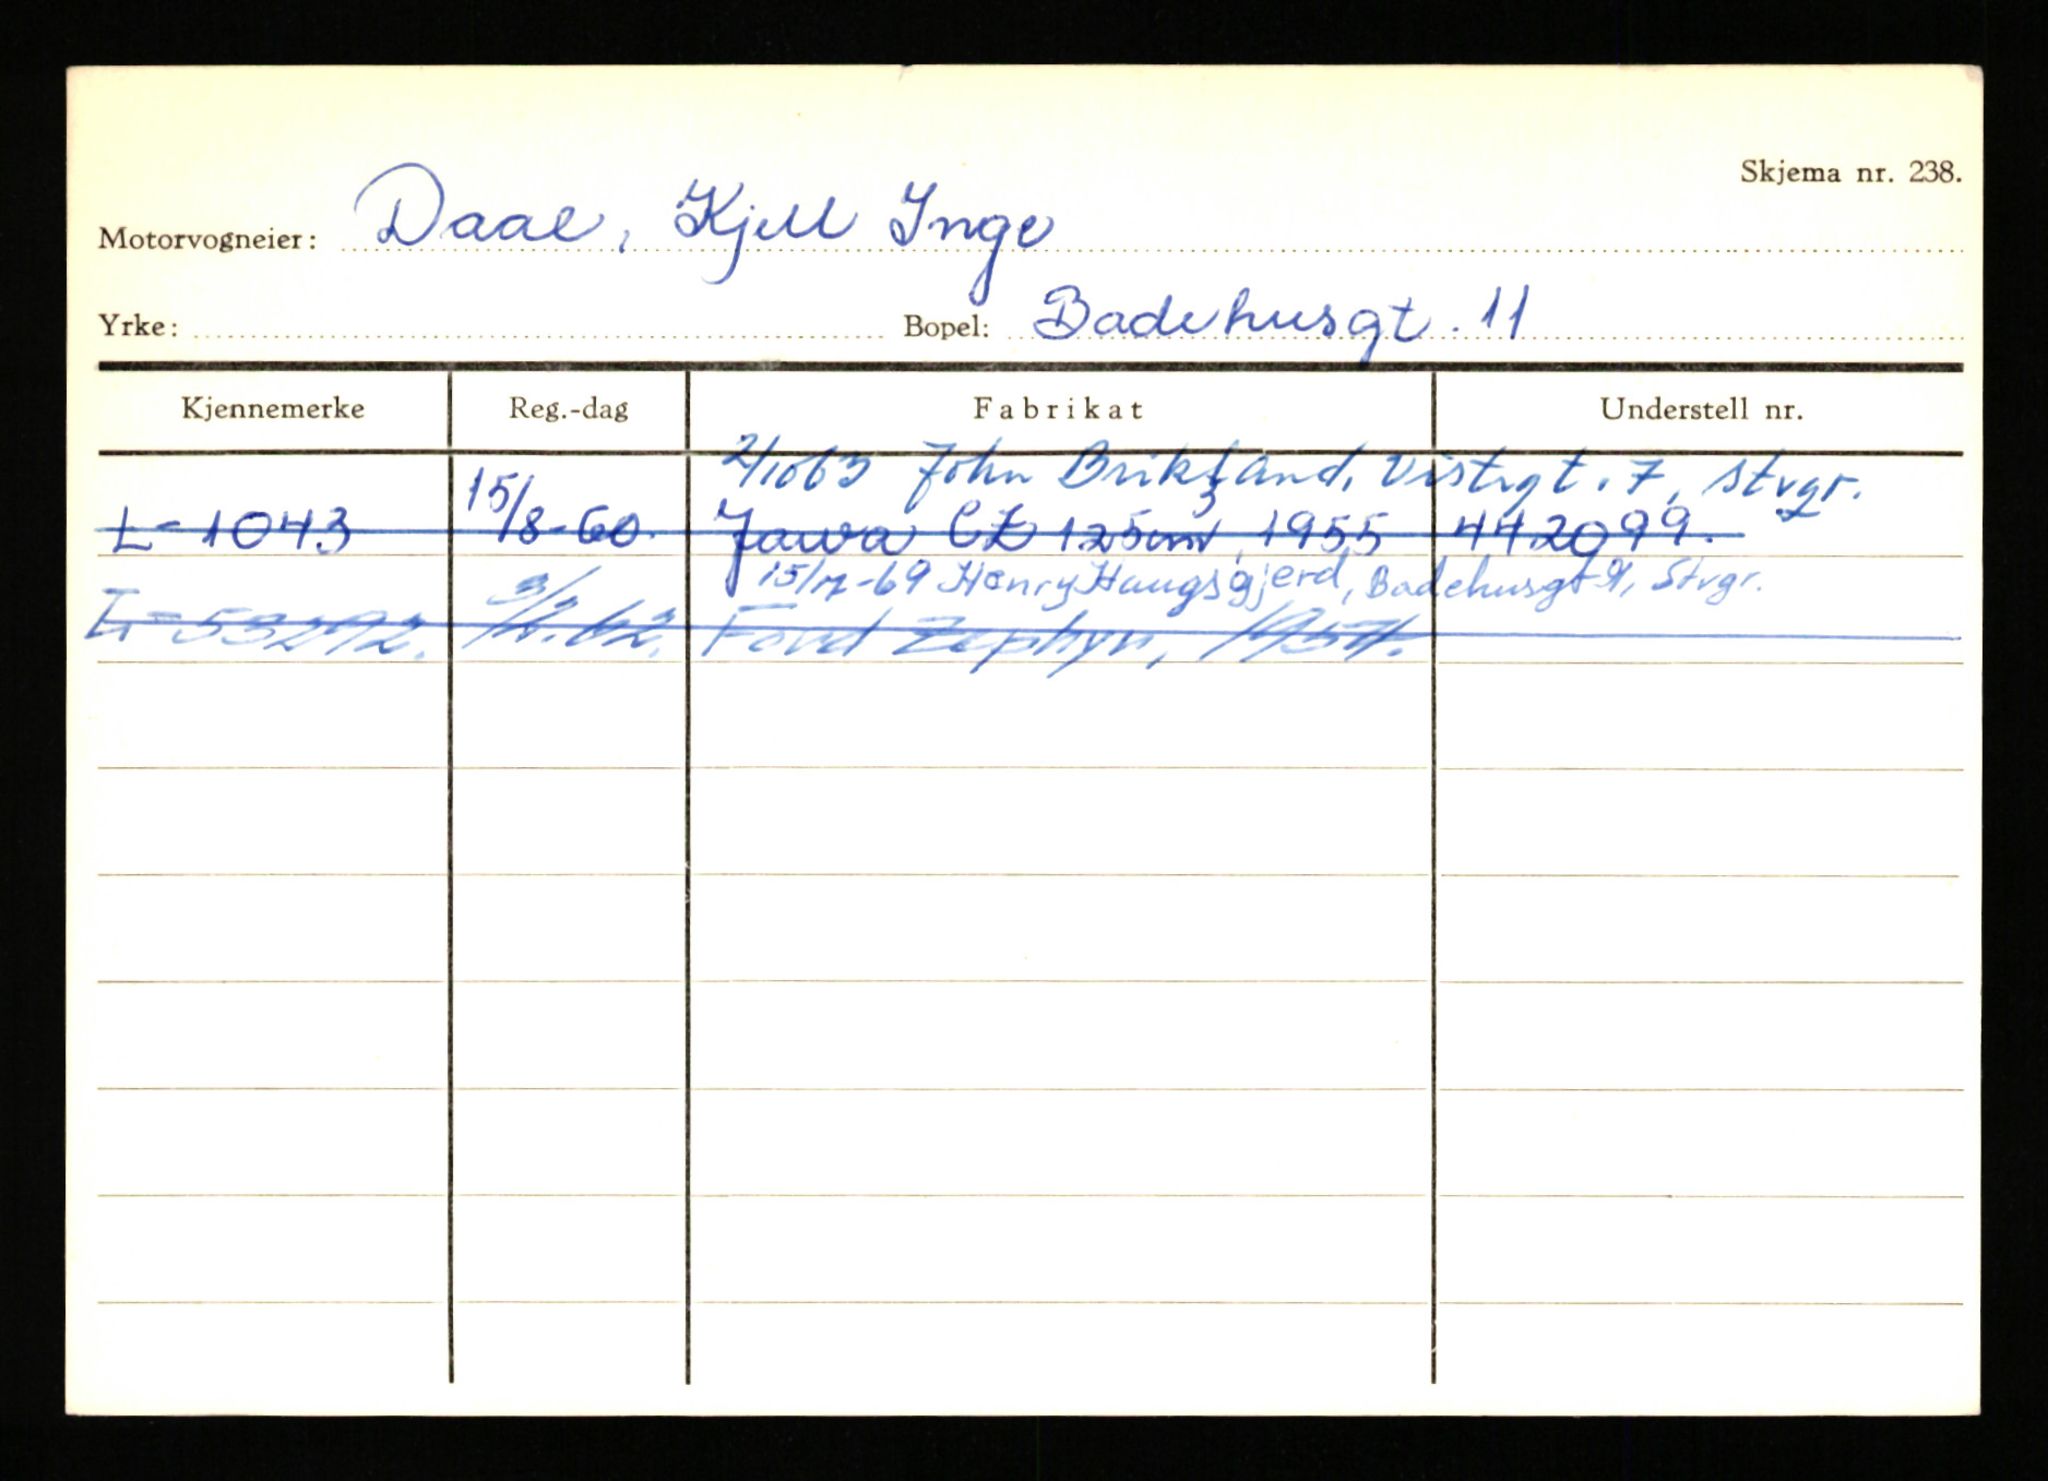 Skjema nr. 238.
Motorvogneier: Daae, Kjell Inge
Yrke: Bopel: Badehusgt. 11
Kjennemerke Reg.-dag Fabrikat Understell nr.
2/1063 John Brikland, Vistegt. 7, Stvgr.
L-1043 15/8-60. Jawa CZ 125cm³, 1955 442099.
15/12-69 Henry Haugsgjerd, Badehusgt 9, Stvgr.
L-53292. 3/2.62. Ford Zephyr, 1957.